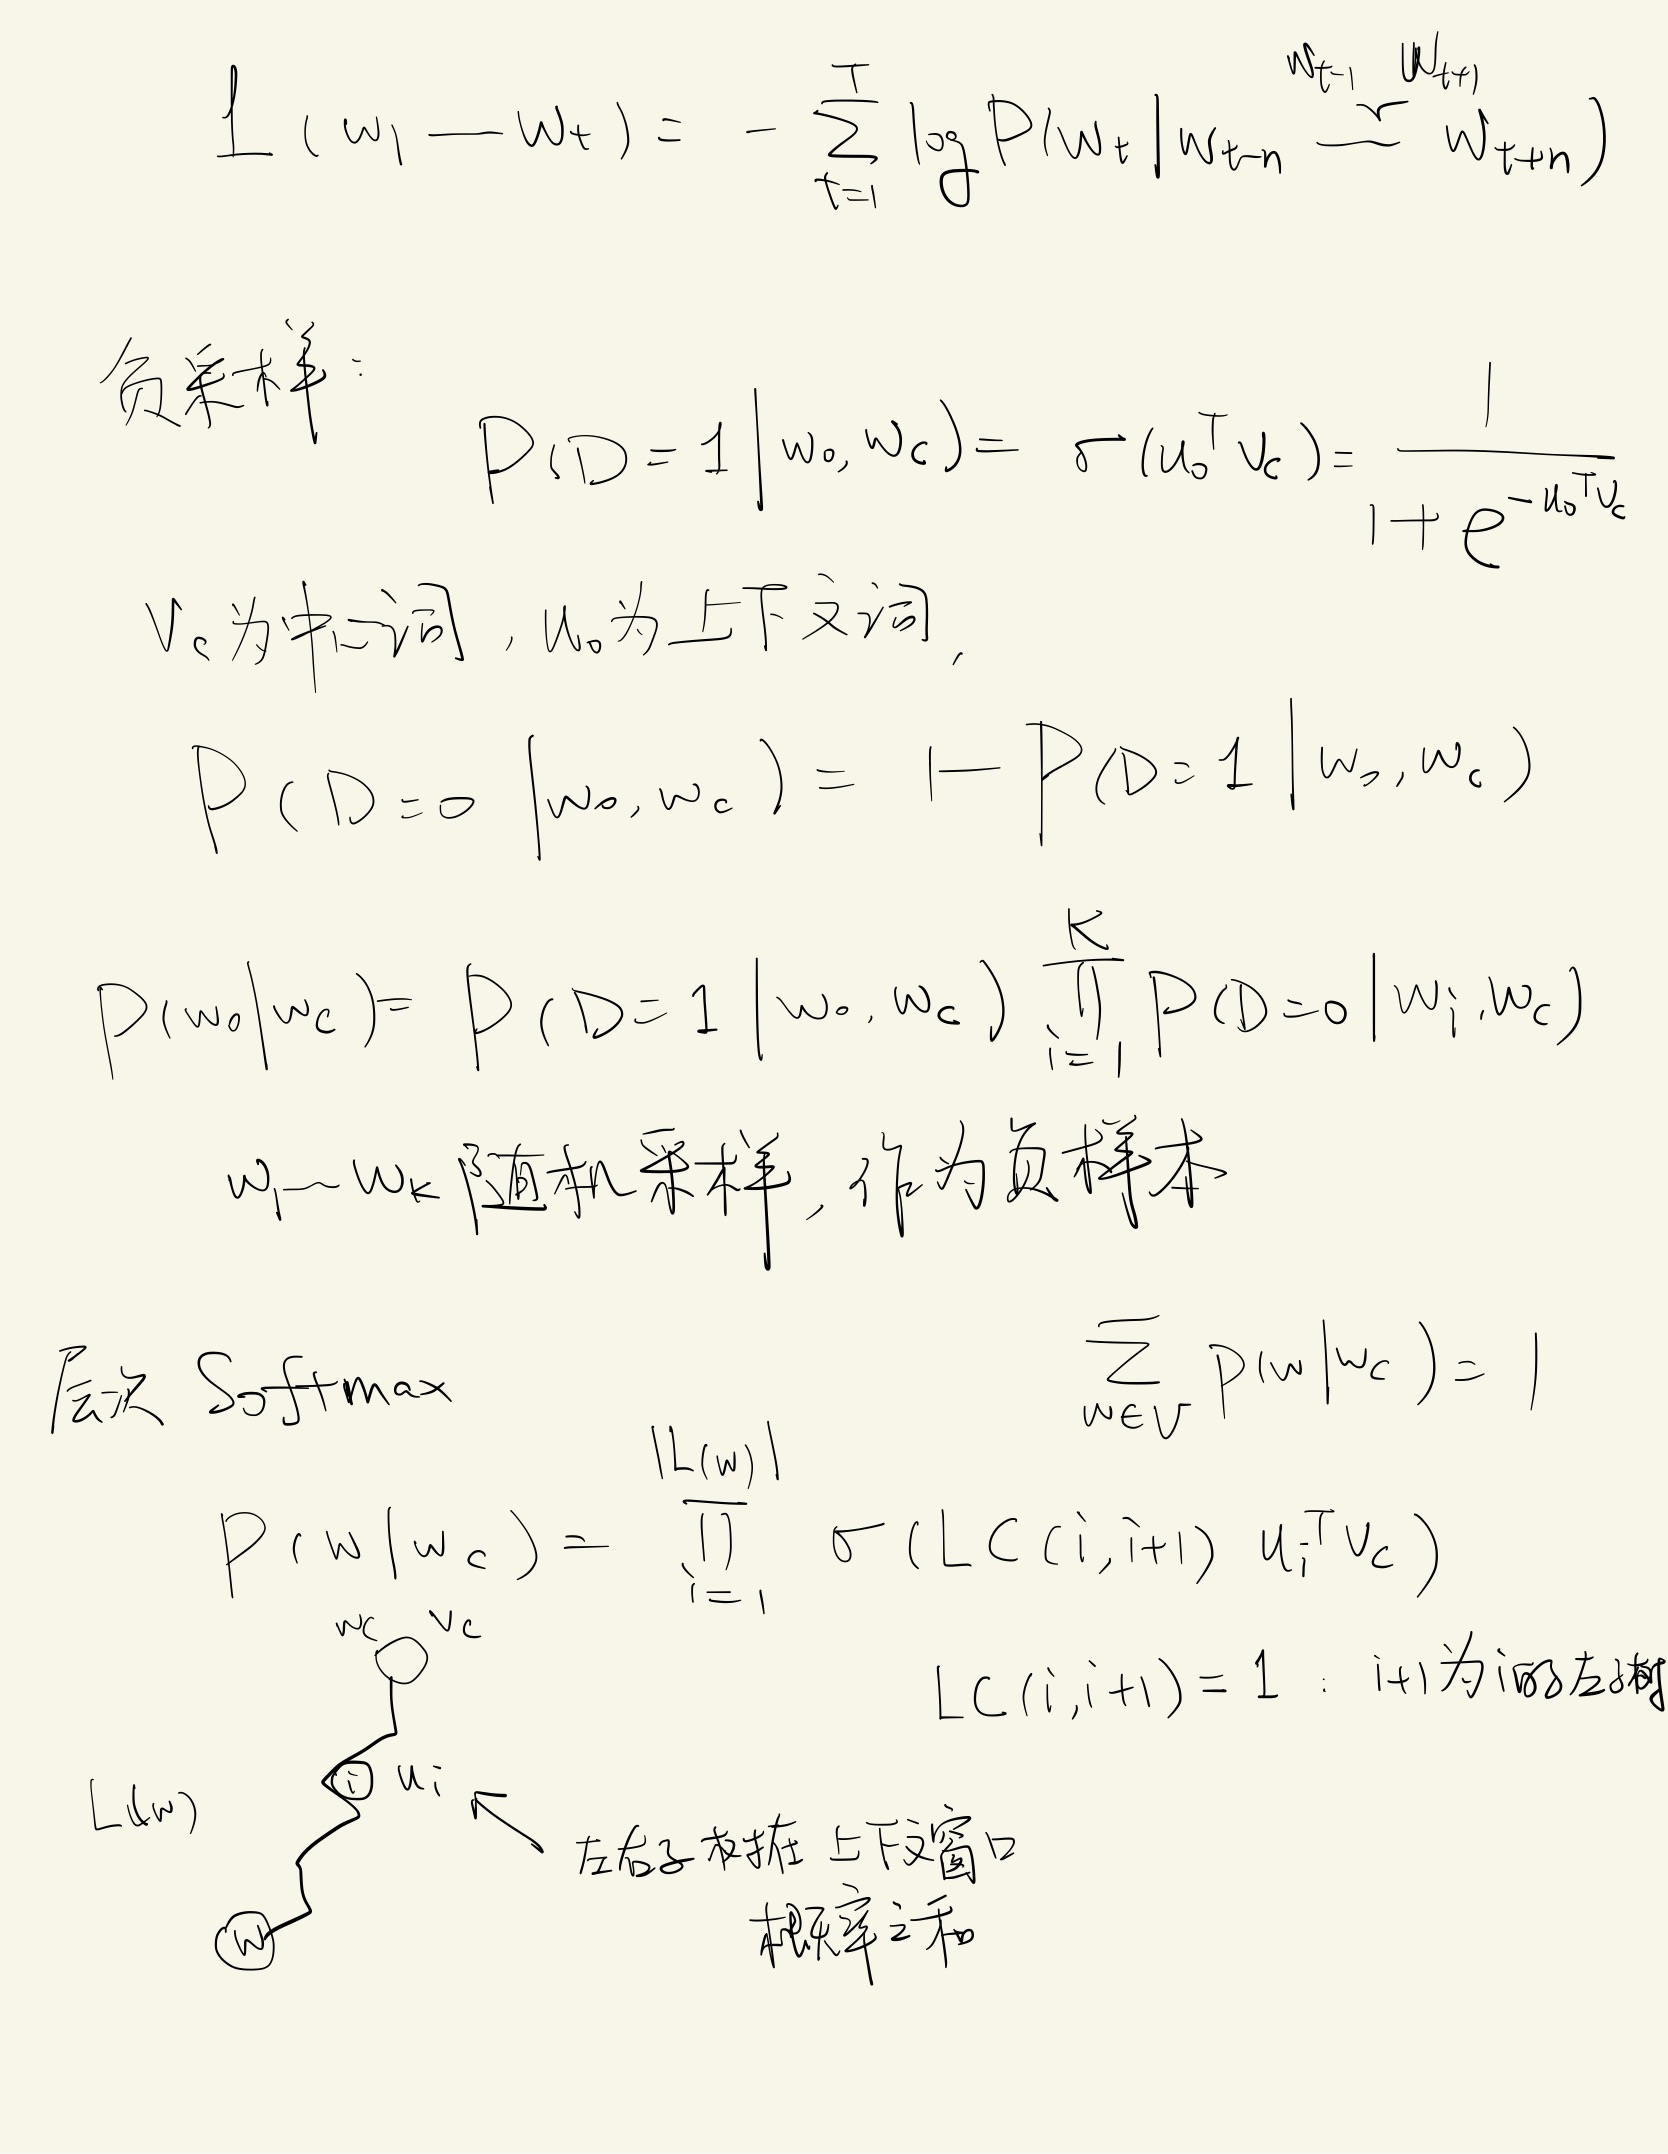 w_{t-1} w_{t+1}
L(w_1 — w_t) = -\sum_{t=1}^{T} log P(w_t | w_{t-n} — w_{t+n})
负采样:
P(D=1 | w_o, w_c) = σ(u_o^T v_c) = \frac{1}{1+e^{-u_o^T v_c}}
v_c为中心词, u_o为上下文词,
P(D=0 | w_o, w_c) = 1 - P(D=1 | w_o, w_c)
P(w_o | w_c) = P(D=1 | w_o, w_c) \prod_{i=1}^{K} P(D=0 | w_i, w_c)
w_1 — w_K 随机采样, 作为负样本
层次 Softmax
\sum_{w∈V} P(w | w_c) = 1
P(w | w_c) = \prod_{i=1}^{|L(w)|} σ(LC(i, i+1) u_i^T v_c)
w_c v_c
LC(i, i+1) = 1 : i+1为i的左子树
i u_i
L(w)
左右子树在上下文窗口
概率之和
w